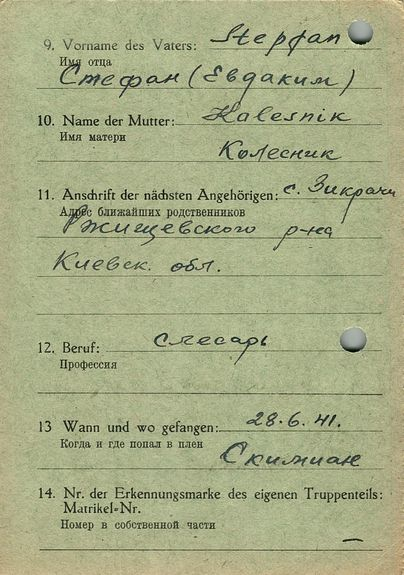 9. Vorname des Vaters: Stepfan
Имя отца
Стефан (Евдаким)
10. Name der Mutter: Kalesnik
Имя матери
Колесник
11. Anschrift der nächsten Angehörigen: с. Зикрачи
Адрес ближайших родственников
Ржищевского р-на
Киевск. обл.
12. Beruf: слесарь
Профессия
13 Wann und wo gefangen: 28.6.41.
Когда и где попал в плен
Скимиан
14. Nr. der Erkennungsmarke des eigenen Truppenteils:
Matrikel-Nr.
Номер в собственной части
—